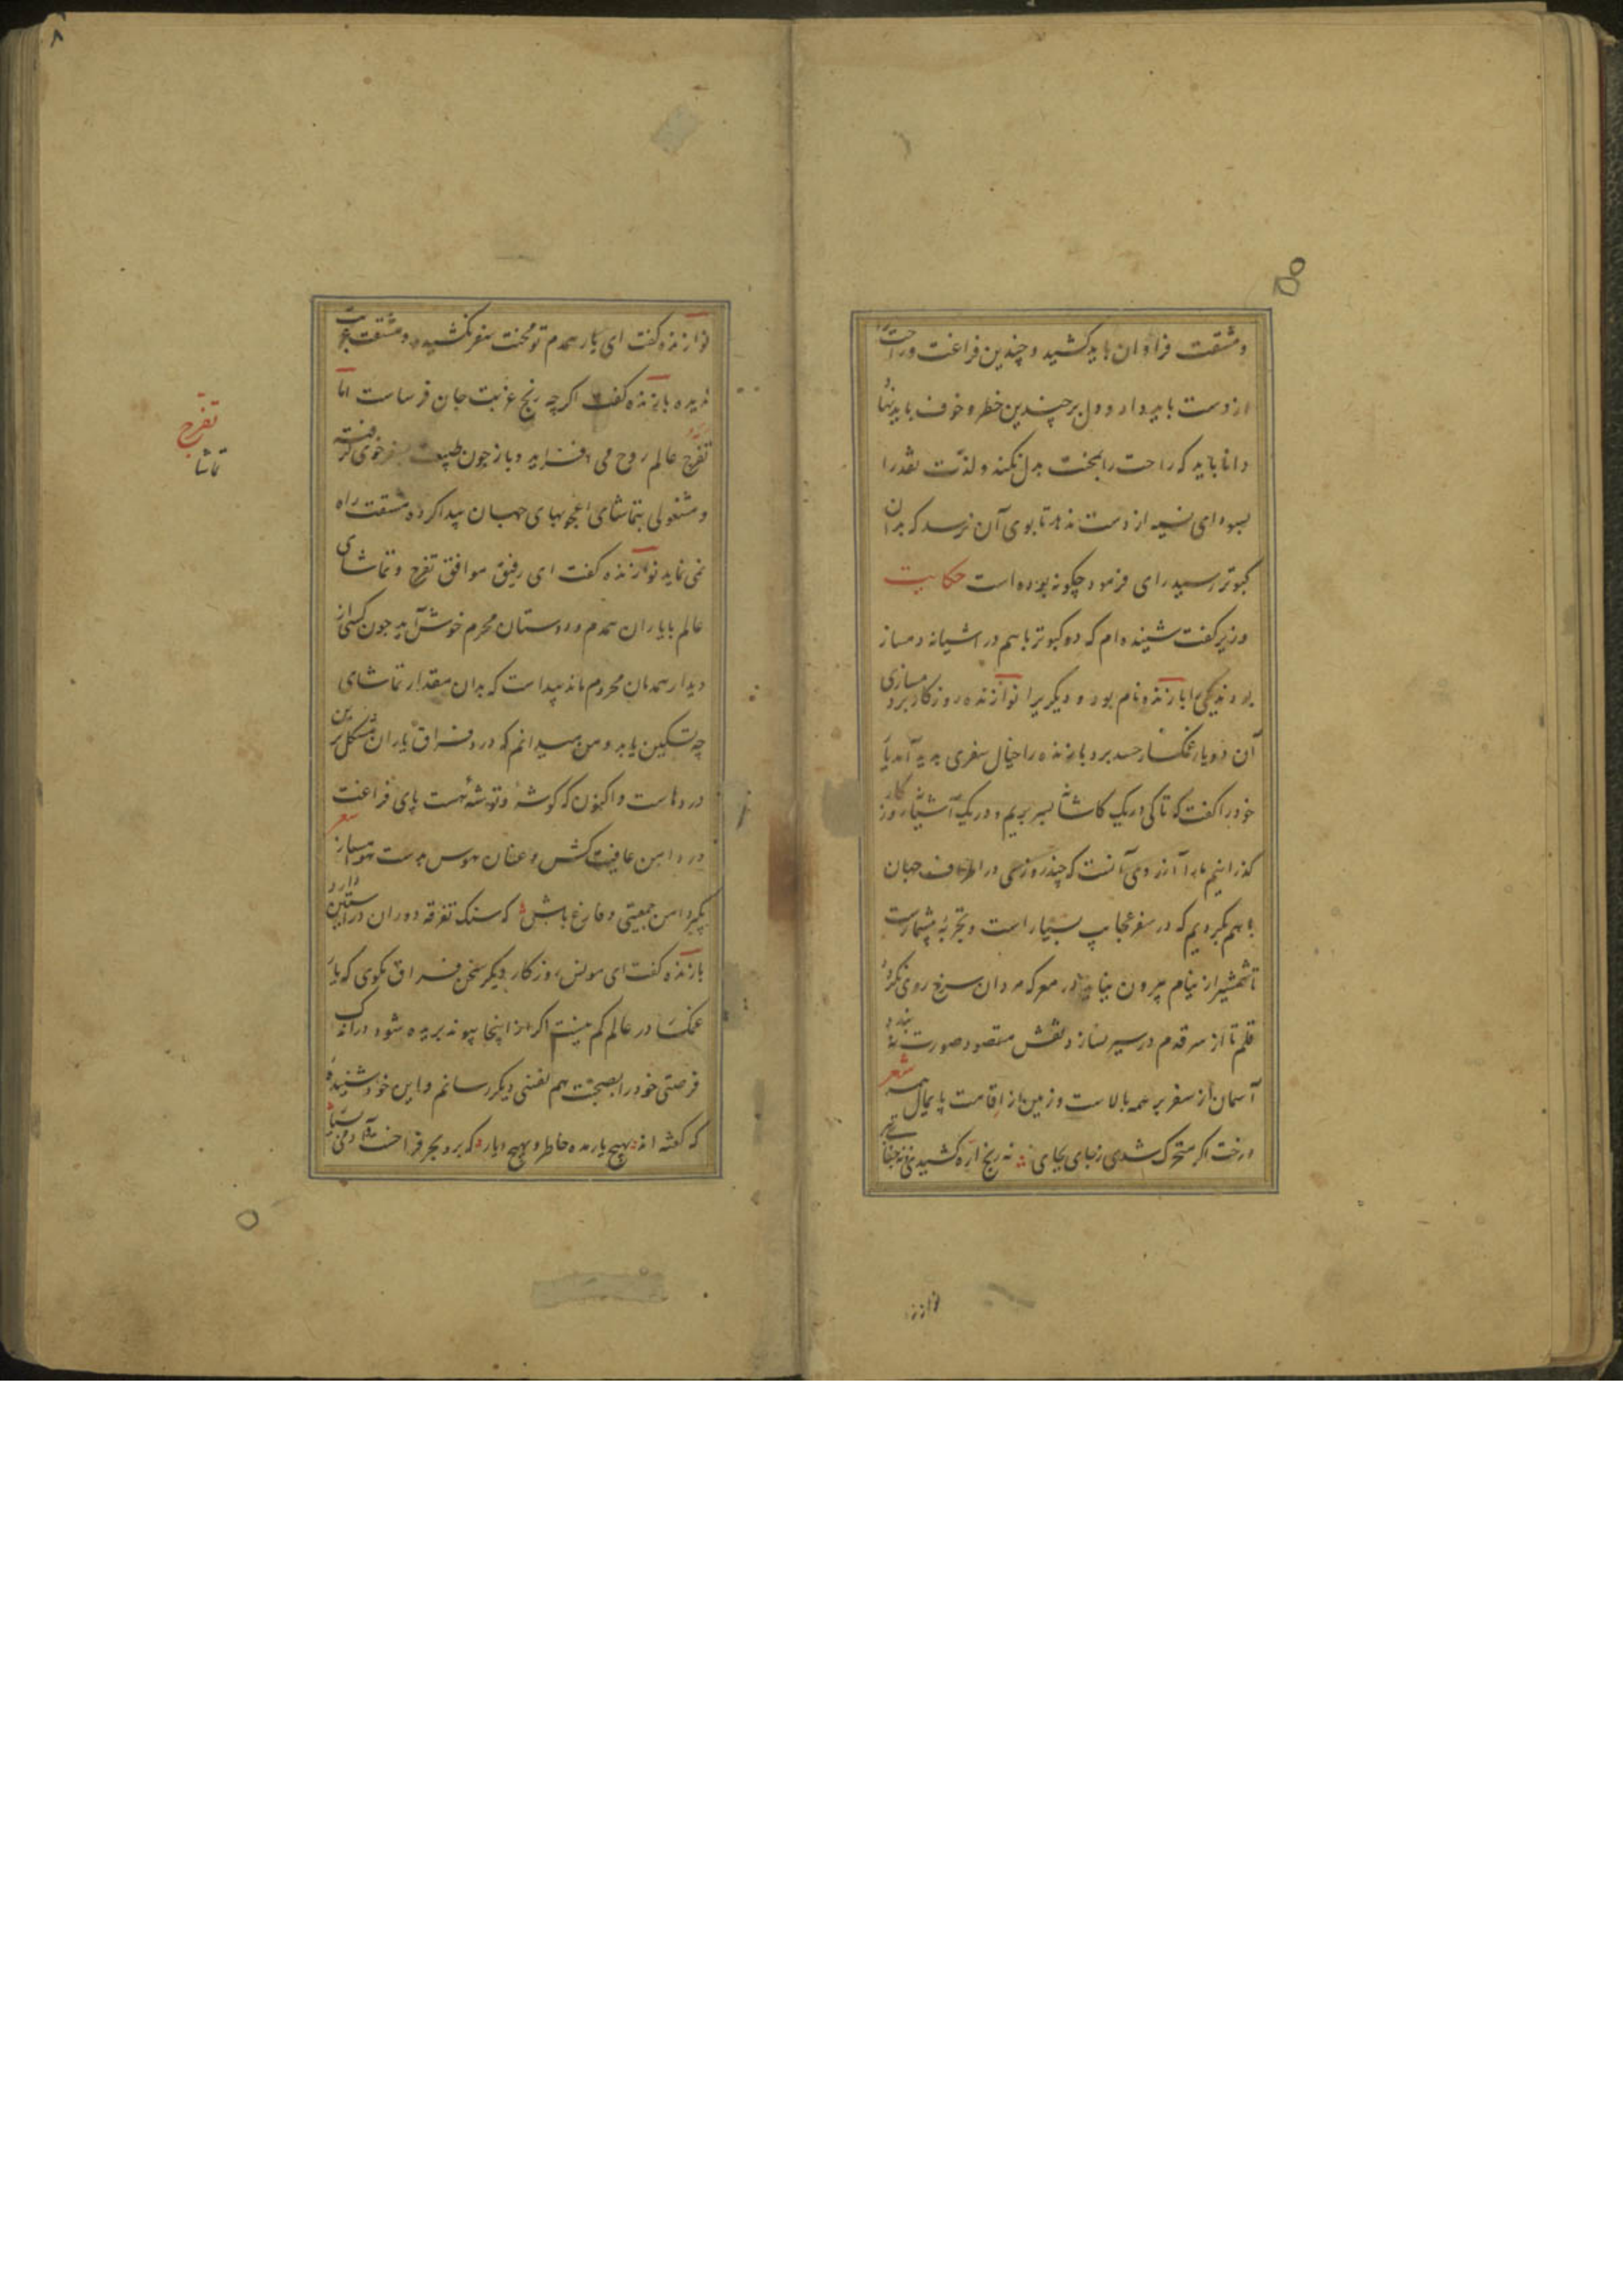 و مشقت فراوان باید کشید و چندین فراغت و راحت را
از دست باید داد و دل بر چندین خطر و خوف باید نهاد
دانا باید که راحت را بمحنت بدل نکند و لذت نقد را
بسودای نسیه از دست ندهد تا بوی آن نرسد که بدان
کبوتر رسید رای فرمود چکونه بوده است حکایت
وزیر کفت شنیده ام که دو کبوتر باهم در اشیانه دمساز
بودند یکی را بازنده نام بود و دیکریرا نوازنده روزکار بر دمسازی
آن دو یار غمکسار حسد برد بازنده را خیال سفری پدید آمد یار
خود را کفت که تا کی در یک کاشانه بسر بریم و در یک آشیانه روزکار
کذرانیم ما را آرزوی آنست که چند روزی در اطراف جهان
باهم بکردیم که در سفر عجایب بسیار است و تجربه بیشمارست
تا شمشیر از نیام بیرون نیاید در معرکه مردان سرخ روی نکردد
قلم تا از سر قدم در سیر نسازد نقش مقصود صورت نه بندد
آسمان از سفر بر همه بالاست و زمین از اقامت پایمال شعر
درخت اکر متحرک شدی ز جای بجای نه رنج اره کشیدی نه جفای تبر
نوازنده
نوازنده کفت ای یار همدم تو محنت سفر نکشیده و مشقت غربت
ندیده بازنده کفت اکرچه رنج غربت جان فرساست اما
تفرج عالم روح می افزاید و باز چون طبیعت بسفر خوی کرفته
و مشغولی بتماشای اعجوبهای جهان پیدا کرده مشقت راه
نمی نماید نوازنده کفت ای رفیق موافق تفرج و تماشای
عالم با یاران همدم و دوستان محرم خوش آید چون کسی از
دیدار همدمان محروم ماند پیداست که بدان مقدار تماشای
چه تسکین یابد و من میدانم که درد فراق یاران مشکل ترین
دردهاست و اکنون که کوشه و توشه هست پای فراغت
در دامن عافیت کش و عنان هوس بدست هوا مساز شعر
بکیر دامن جمعیتی و فارغ باش که سنک تفرقه دوران در آستین دارد
بازنده کفت ای مونس روزکار دیکر سخن فراق مکوی که یار
غمکسار در عالم کم نیست اکر از اینجا پیوند بریده شود در اندک
فرصتی خود را بصحبت هم نفسی دیکر رسانم و این خود شنیده
که کفته اند بهیچ یار مده خاطر و بهیچ دیار که بر و بحر فراخست و آدمی بسیار
تفرج
تماشا
۸